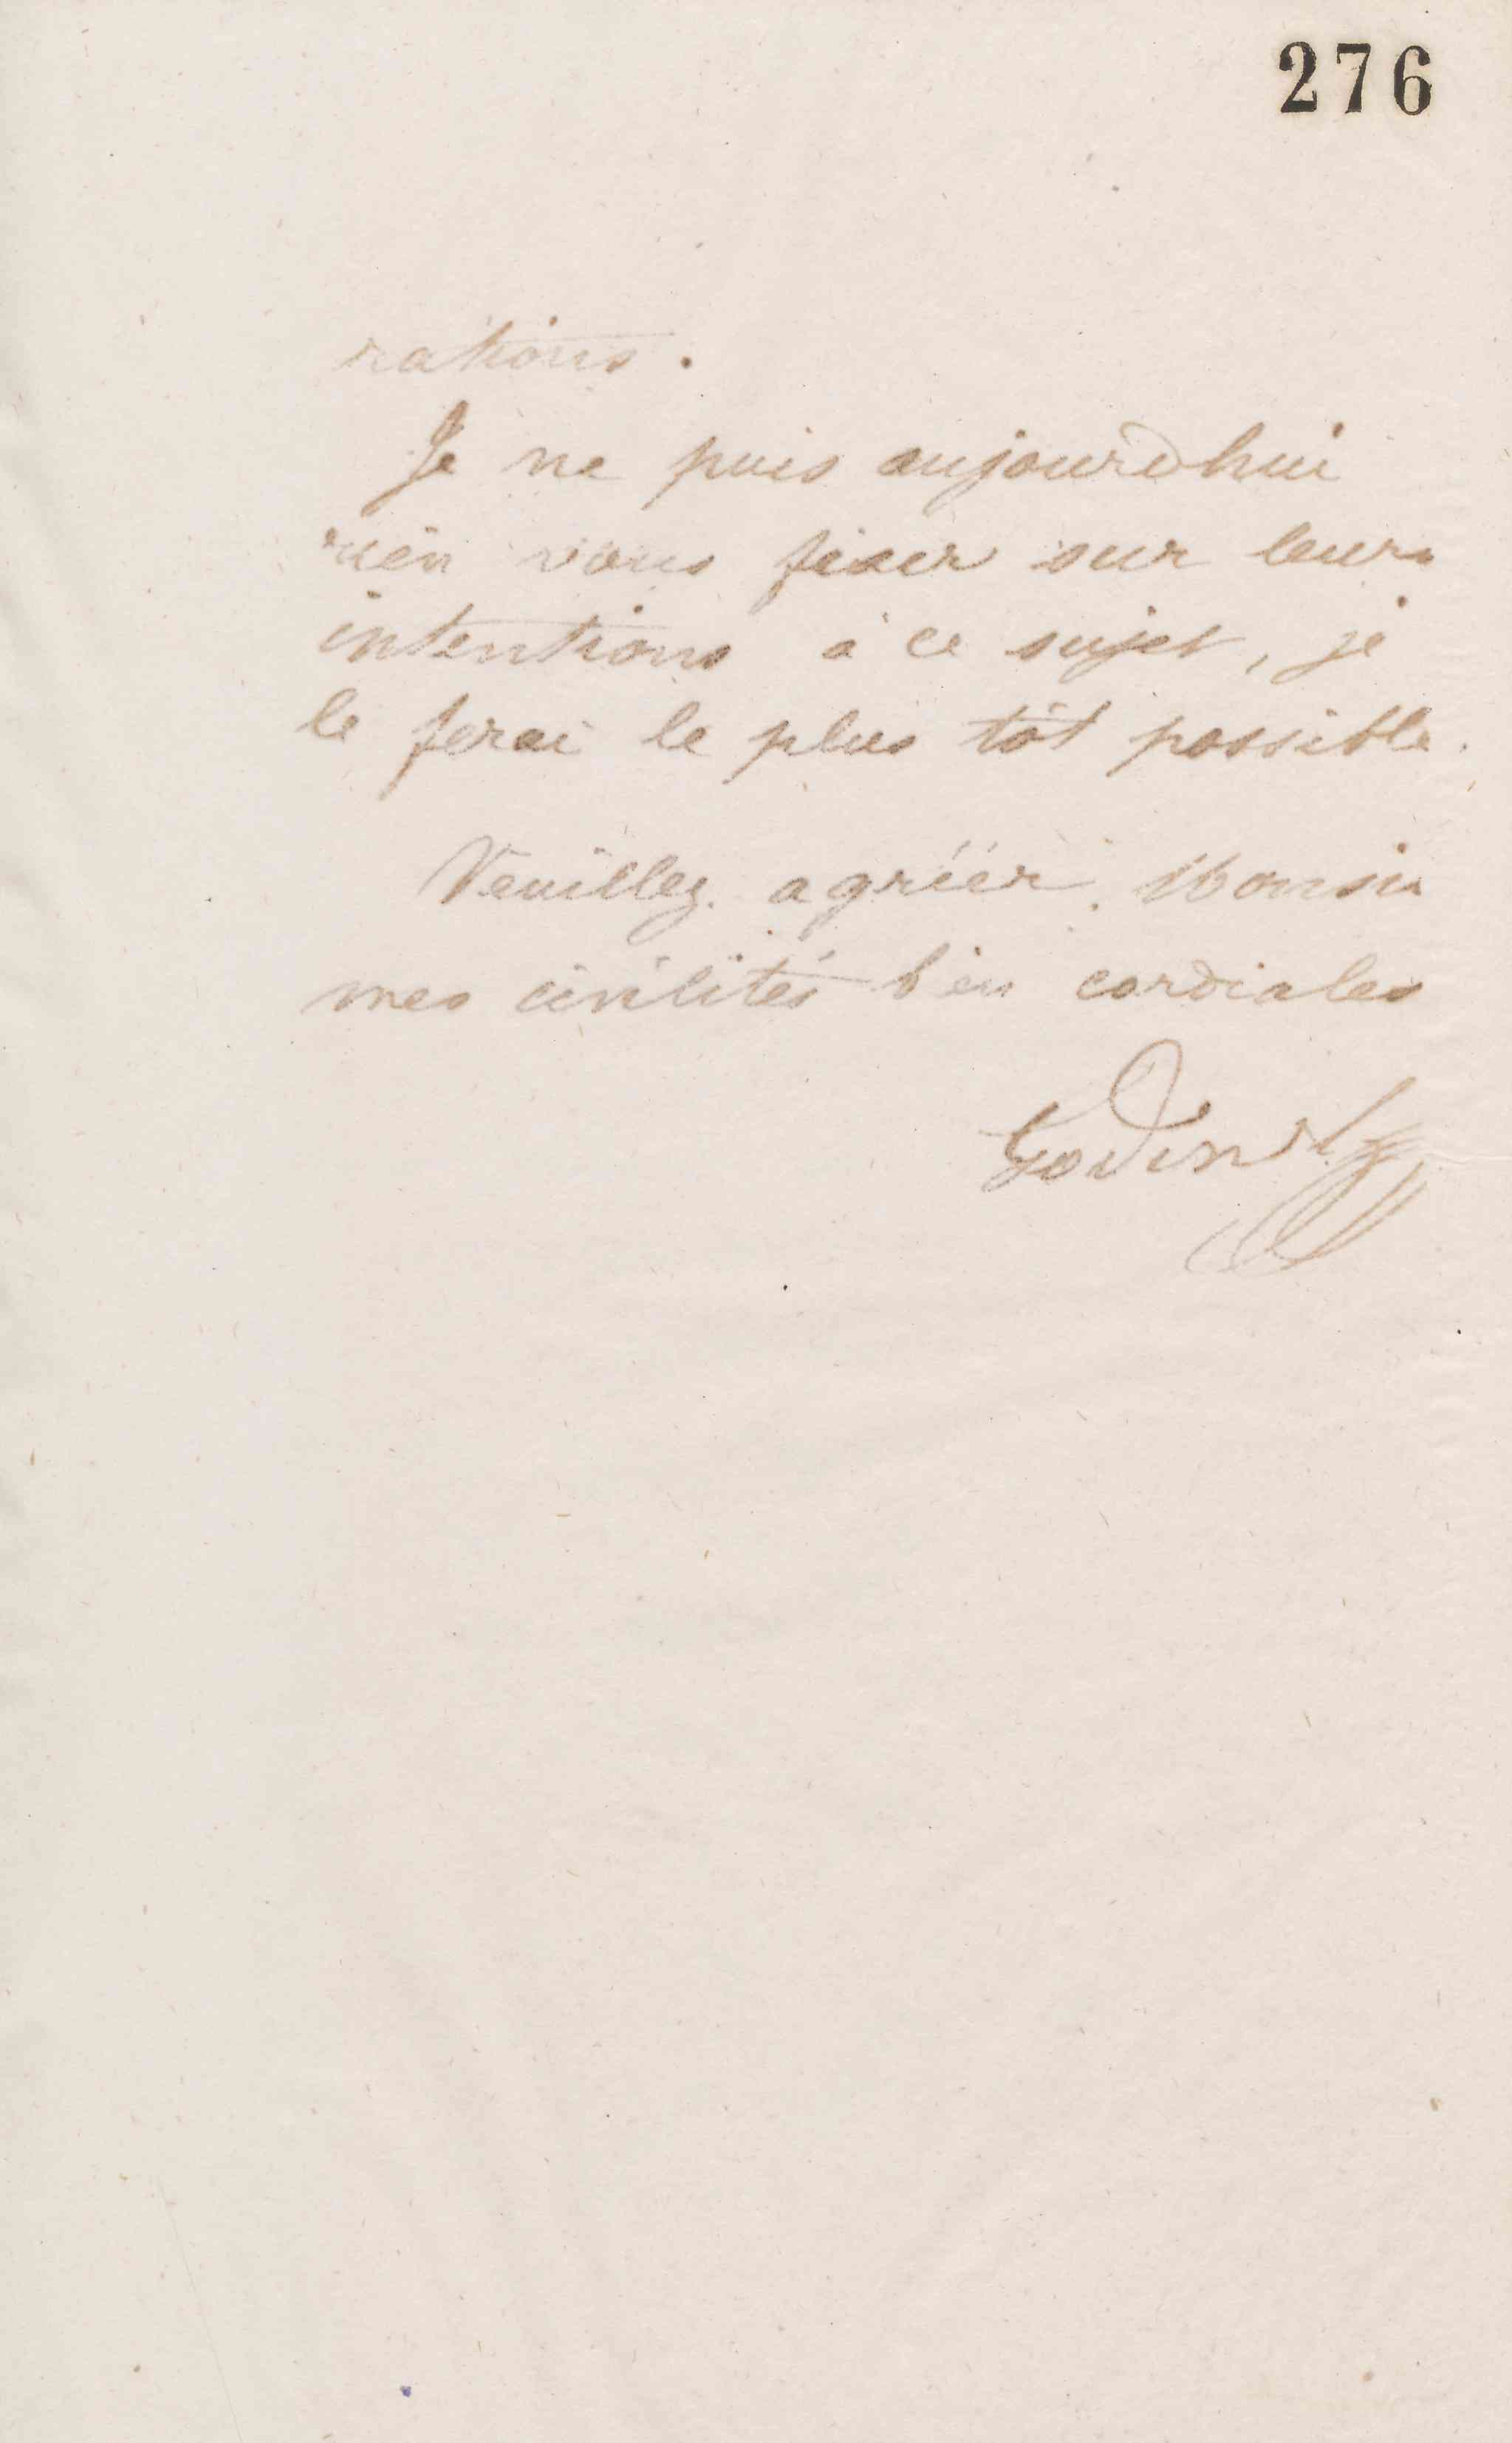 276
rations.
Je ne puis aujourdhui
rien vous fixer sur leurs
intentions à ce sujet, je
le ferai le plus tôt possible.
Veuillez agréér, Monsie
mes civilités bien cordiales
Godin